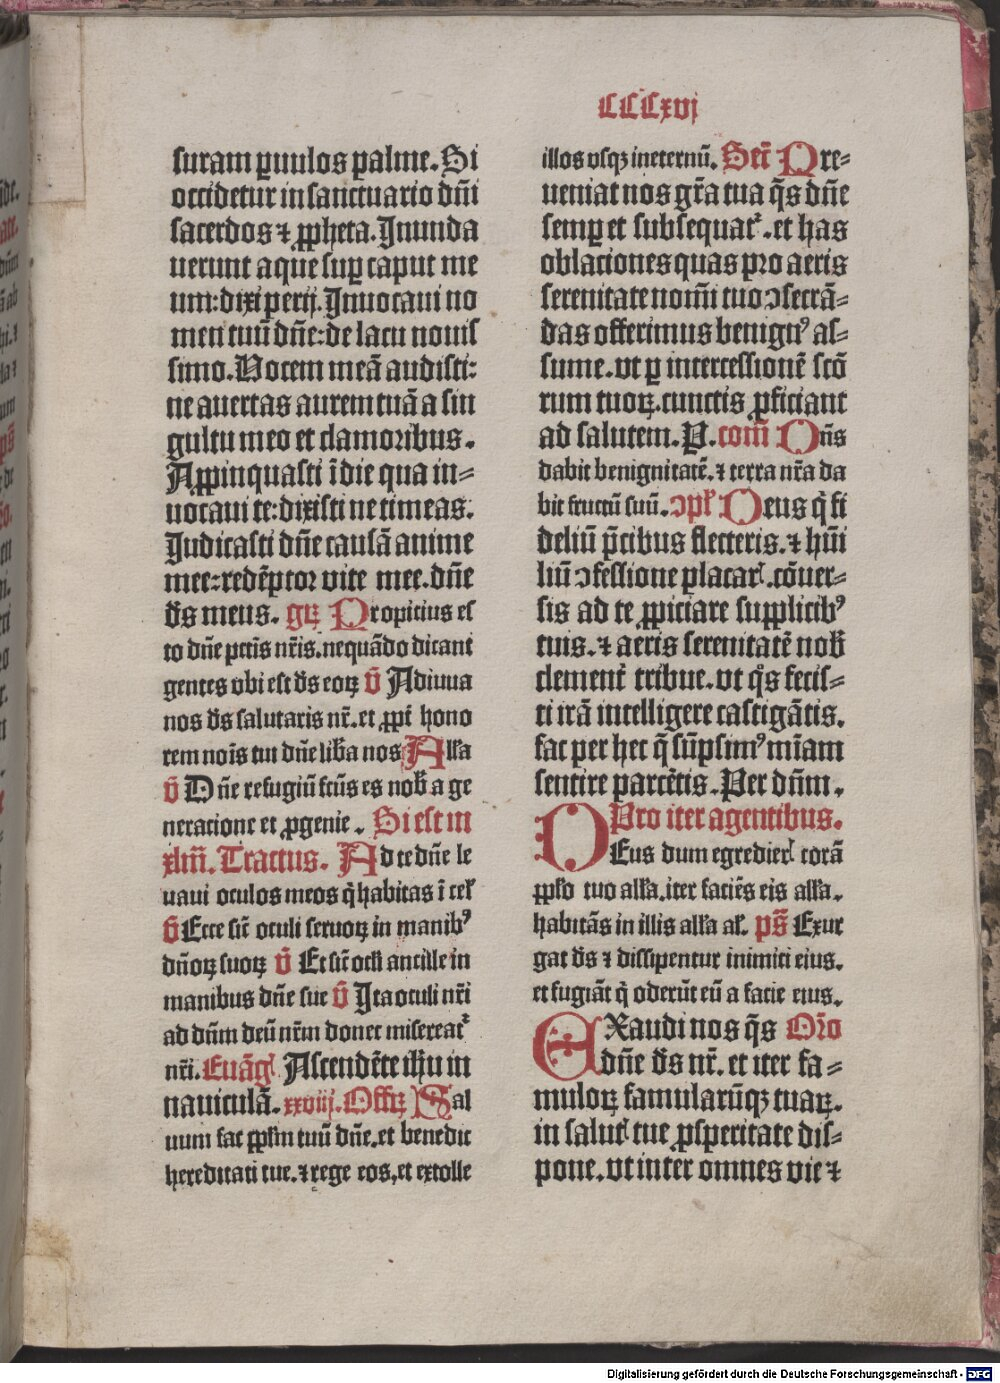 CCCxvj
suram puulos palme. Si
occidetur in sanctuario dñi
sacerdos ⁊ ꝓpheta. Inunda
uerunt aque suꝑ caput me
um: dixi perij. Inuocaui no
men tuū dñe: de lacu nouis
simo. Vocem meā audisti:
ne auertas aurem tuā a sin
gultu meo et clamoribus.
Aꝓpinquasti ī die qua in⸗
uocaui te: dixisti ne timeas.
Iudicasti dñe causā anime
mee: redēptor vite mee. dñe
ds̄ meus. gꝝ Propicius es
to dñe pctīs nr̄is. nequādo dicant
gentes vbi est ds̄ eoꝝ v̄ Adiuua
nos ds̄ salutaris nr̄. et ꝓpt̄ hono
rem noīs tui dñe lib̄a nos All̄a
v̄ Dñe refugiū fcūs es nob̄ a ge
neracione et ꝓgenie. Si est in
xlm̄. Tractus. Ad te dñe le
uaui oculos meos q̄ habitas ī cel̄
v̄ Ecce sic̄ oculi seruoꝝ in manibꝰ
dñoꝝ suoꝝ v̄ Et sic̄ ocl̄i ancille in
manibus dñe sue v̄ Ita oculi nr̄i
ad dn̄m deū nr̄m donec misereat᷑
nr̄i. Euāgl̄ Ascendēte ih̄u in
nauiculā. xxviij. Offꝝ Sal
uum fac ꝓpl̄m tuū dñe. et benedic
hereditati tue. ⁊ rege eos, et extolle
illos vsqꝫ ineternū. Secr̄ Pre⸗
ueniat nos gr̄a tua q̄s dñe
semꝑ et subsequat᷑. et has
oblaciones quas pro aeris
serenitate nomī tuo ↄsecrā⸗
das offerimus benignꝰ as⸗
sume. vt ꝑ intercessionē scō
rum tuoꝝ. cunctis ꝓficiant
ad salutem. P. com̄ Dn̄s
dabit benignitatē. ⁊ terra nr̄a da
bit fructū suū. ↄpl̄ Deus q̄ fi
deliū p̄cibus flecteris. ⁊ hūi
liū ↄfessione placar̄. cōuer⸗
sis ad te ꝓpiciare supplicibꝰ
tuis. ⁊ aeris serenitatē nob̄
clement̄ tribue. vt q̄s fecis⸗
ti irā intelligere castigātis.
fac per hec q̄ sūpsimꝰ mīam
sentire parcētis. Per dn̄m.
Pro iter agentibus.
DEus dum egredier̄ corā
ꝓpl̄o tuo all̄a. iter faciēs eis all̄a.
habitās in illis all̄a al̄. ps̄ Exur
gat ds̄ ⁊ dissipentur inimici eius.
et fugiāt q̄ oderūt eū a facie eius.
EXaudi nos q̄s Orō
dñe ds̄ nr̄. et iter fa⸗
muloꝝ famularūqꝫ tuaꝝ.
in salut̄ tue ꝓsperitate dis⸗
pone. vt inter omnes vie ⁊
Digitalisierung gefördert durch die Deutsche Forschungsgemeinschaft - DFG